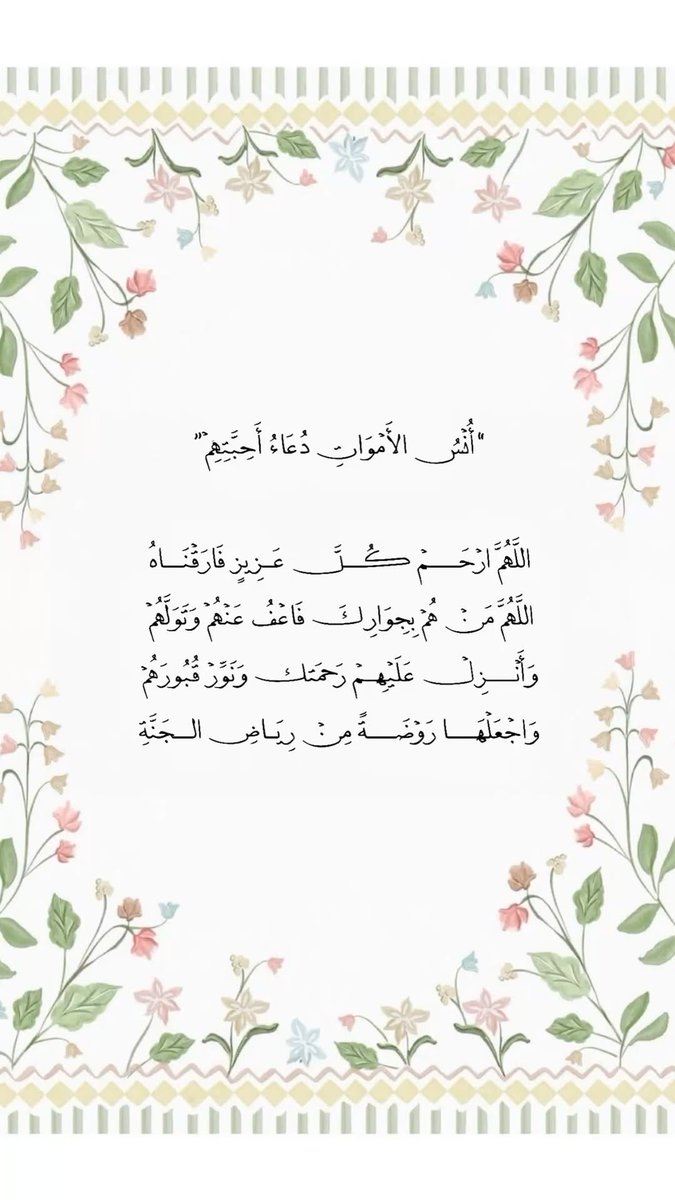 "أُنْسُ الأَمْوَاتِ دُعَاءُ أَحِبَّتِهِمْ"
اللَّهُمَّ ارْحَــــمْ كُــــلَّ عَــزِيزٍ فَارَقْنَــاهُ
اللَّهُمَّ مَنْ هُمْ بِجِوَارِكَ فَاعْفُ عَنْهُمْ وَتَوَلَّهُمْ
وَأَنْــــزِلْ عَلَيْهِــمْ رَحَمَتكَ وَنَوِّرْ قُبُورَهُمْ
وَاجْعَلْهَــــا رَوْضَــــةً مِنْ رِيَـاضِ الــجَنَّةِ